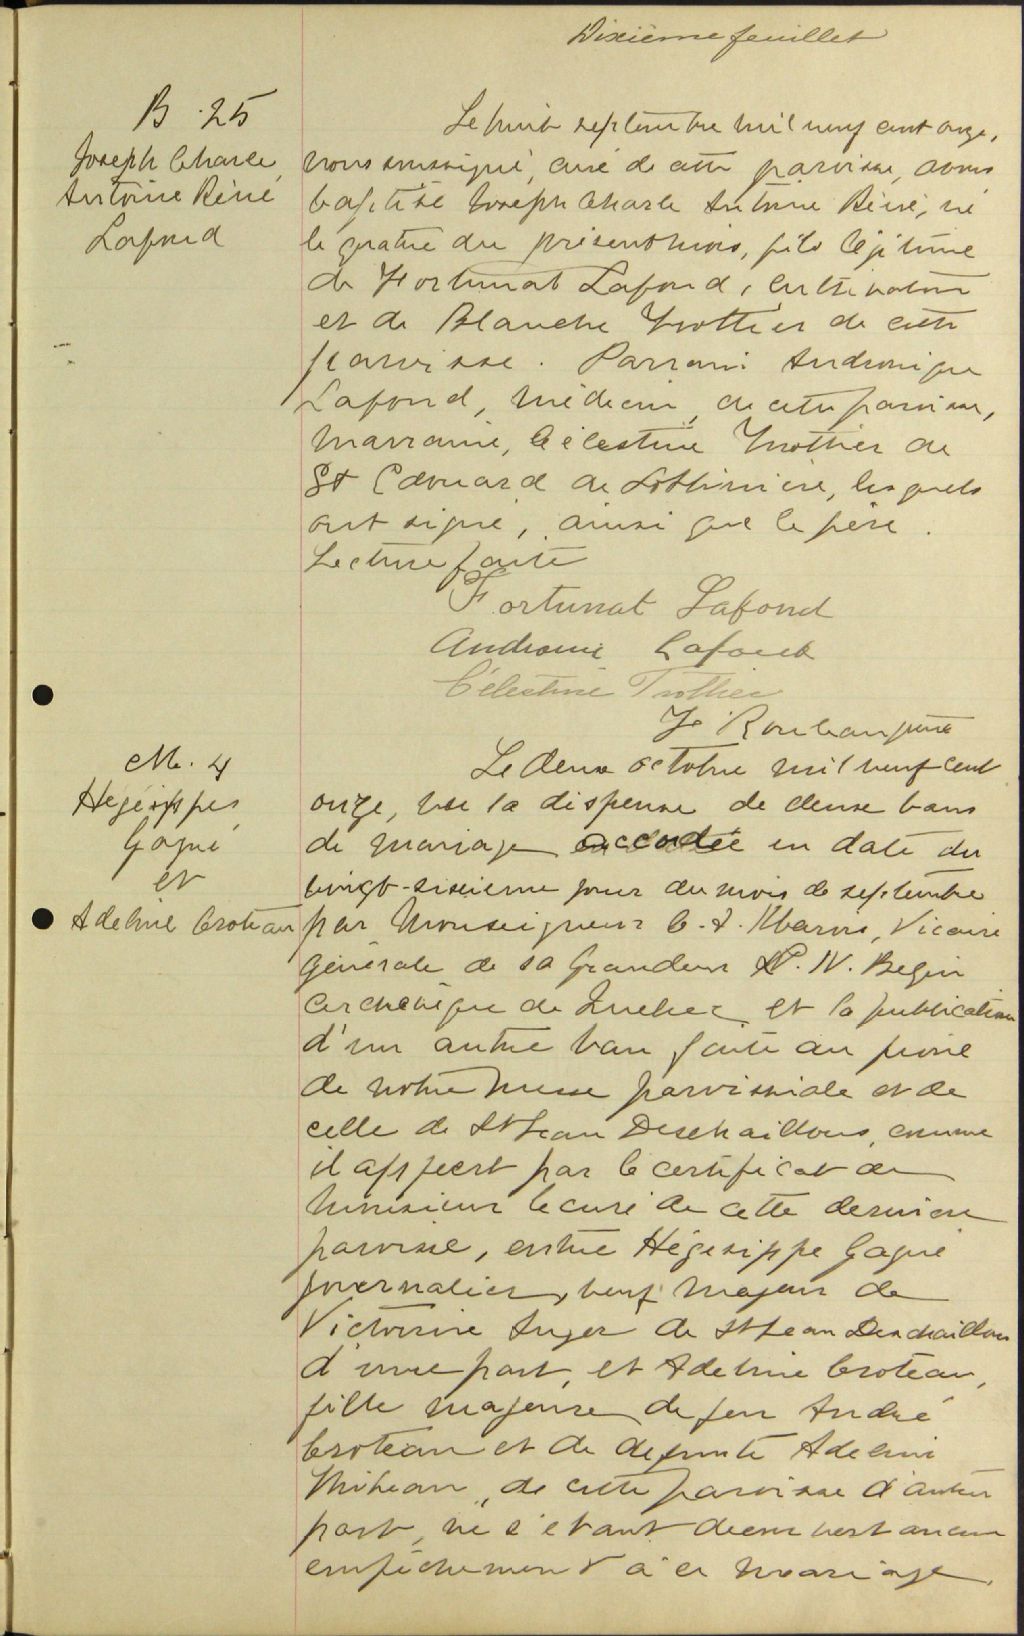 Dixième feuillet
B. 25
Joseph Charle
Antoine Réné
Lafond
Le huit septembre mil neuf cent onze,
nous soussigné, curé de cette paroisse, avons
baptisé Joseph Charle Antoine Réné, né
le quatre du présent mois, fils légitime
de Fortunat Lafond, cultivateur
et de Blanche Trottier de cette
paroisse. Parrain: Andronique
Lafond, médecin, de cette paroisse,
marraine, Célestine Trottier de
St Edouard de Lotbinière, lesquels
ont signé, ainsi que le père.
Lecture faite
Fortunat Lafond
Lafond
Célestine Trottier
M. 4
Hégésippe
Gagné
et
Adeline Croteau
Le deux octobre mil neuf cent
onze, vue la dispense de deux bans
de mariage accordée en date du
vingt-sixieme jour du mois de septembre
par Monseigneur C. A. Marois, Vicaire
Générale de sa Grandeur N. Begin
archevêque de Quebec et la publication
d'un autre ban faite au prone
de notre messe paroissiale et de
celle de St Jean Deschaillons, comme
il appert par le certificat de
monsieur le curé de cette derniere
paroisse, entre Hégesippe Gagné
journalier, veuf majeur de
Victorine Auger de St Jean Deschaillons
d'une part, et Adeline Croteau,
fille majeure de feu André
Croteau et de defunte Adeline
de cette paroisse d'autre
part, ne s'etant decouvert aucun
empêchement à ce mariage,